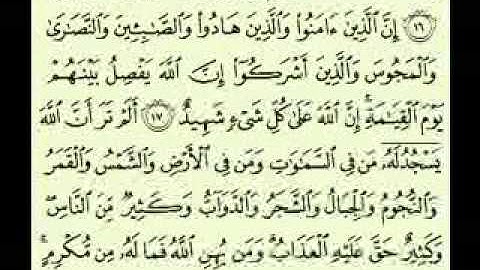 ﴿١٦﴾ إِنَّ ٱلَّذِينَ ءَامَنُوا۟ وَٱلَّذِينَ هَادُوا۟ وَٱلصَّـٰبِـِٔينَ وَٱلنَّصَـٰرَىٰ
وَٱلْمَجُوسَ وَٱلَّذِينَ أَشْرَكُوٓا۟ إِنَّ ٱللَّهَ يَفْصِلُ بَيْنَهُمْ
يَوْمَ ٱلْقِيَـٰمَةِ ۚ إِنَّ ٱللَّهَ عَلَىٰ كُلِّ شَىْءٍ شَهِيدٌ ﴿١٧﴾ أَلَمْ تَرَ أَنَّ ٱللَّهَ
يَسْجُدُ لَهُۥ مَن فِى ٱلسَّمَـٰوَٰتِ وَمَن فِى ٱلْأَرْضِ وَٱلشَّمْسُ وَٱلْقَمَرُ
وَٱلنُّجُومُ وَٱلْجِبَالُ وَٱلشَّجَرُ وَٱلدَّوَآبُّ وَكَثِيرٌ مِّنَ ٱلنَّاسِ ۖ
وَكَثِيرٌ حَقَّ عَلَيْهِ ٱلْعَذَابُ ۗ وَمَن يُهِنِ ٱللَّهُ فَمَا لَهُۥ مِن مُّكْرِمٍ ۚ